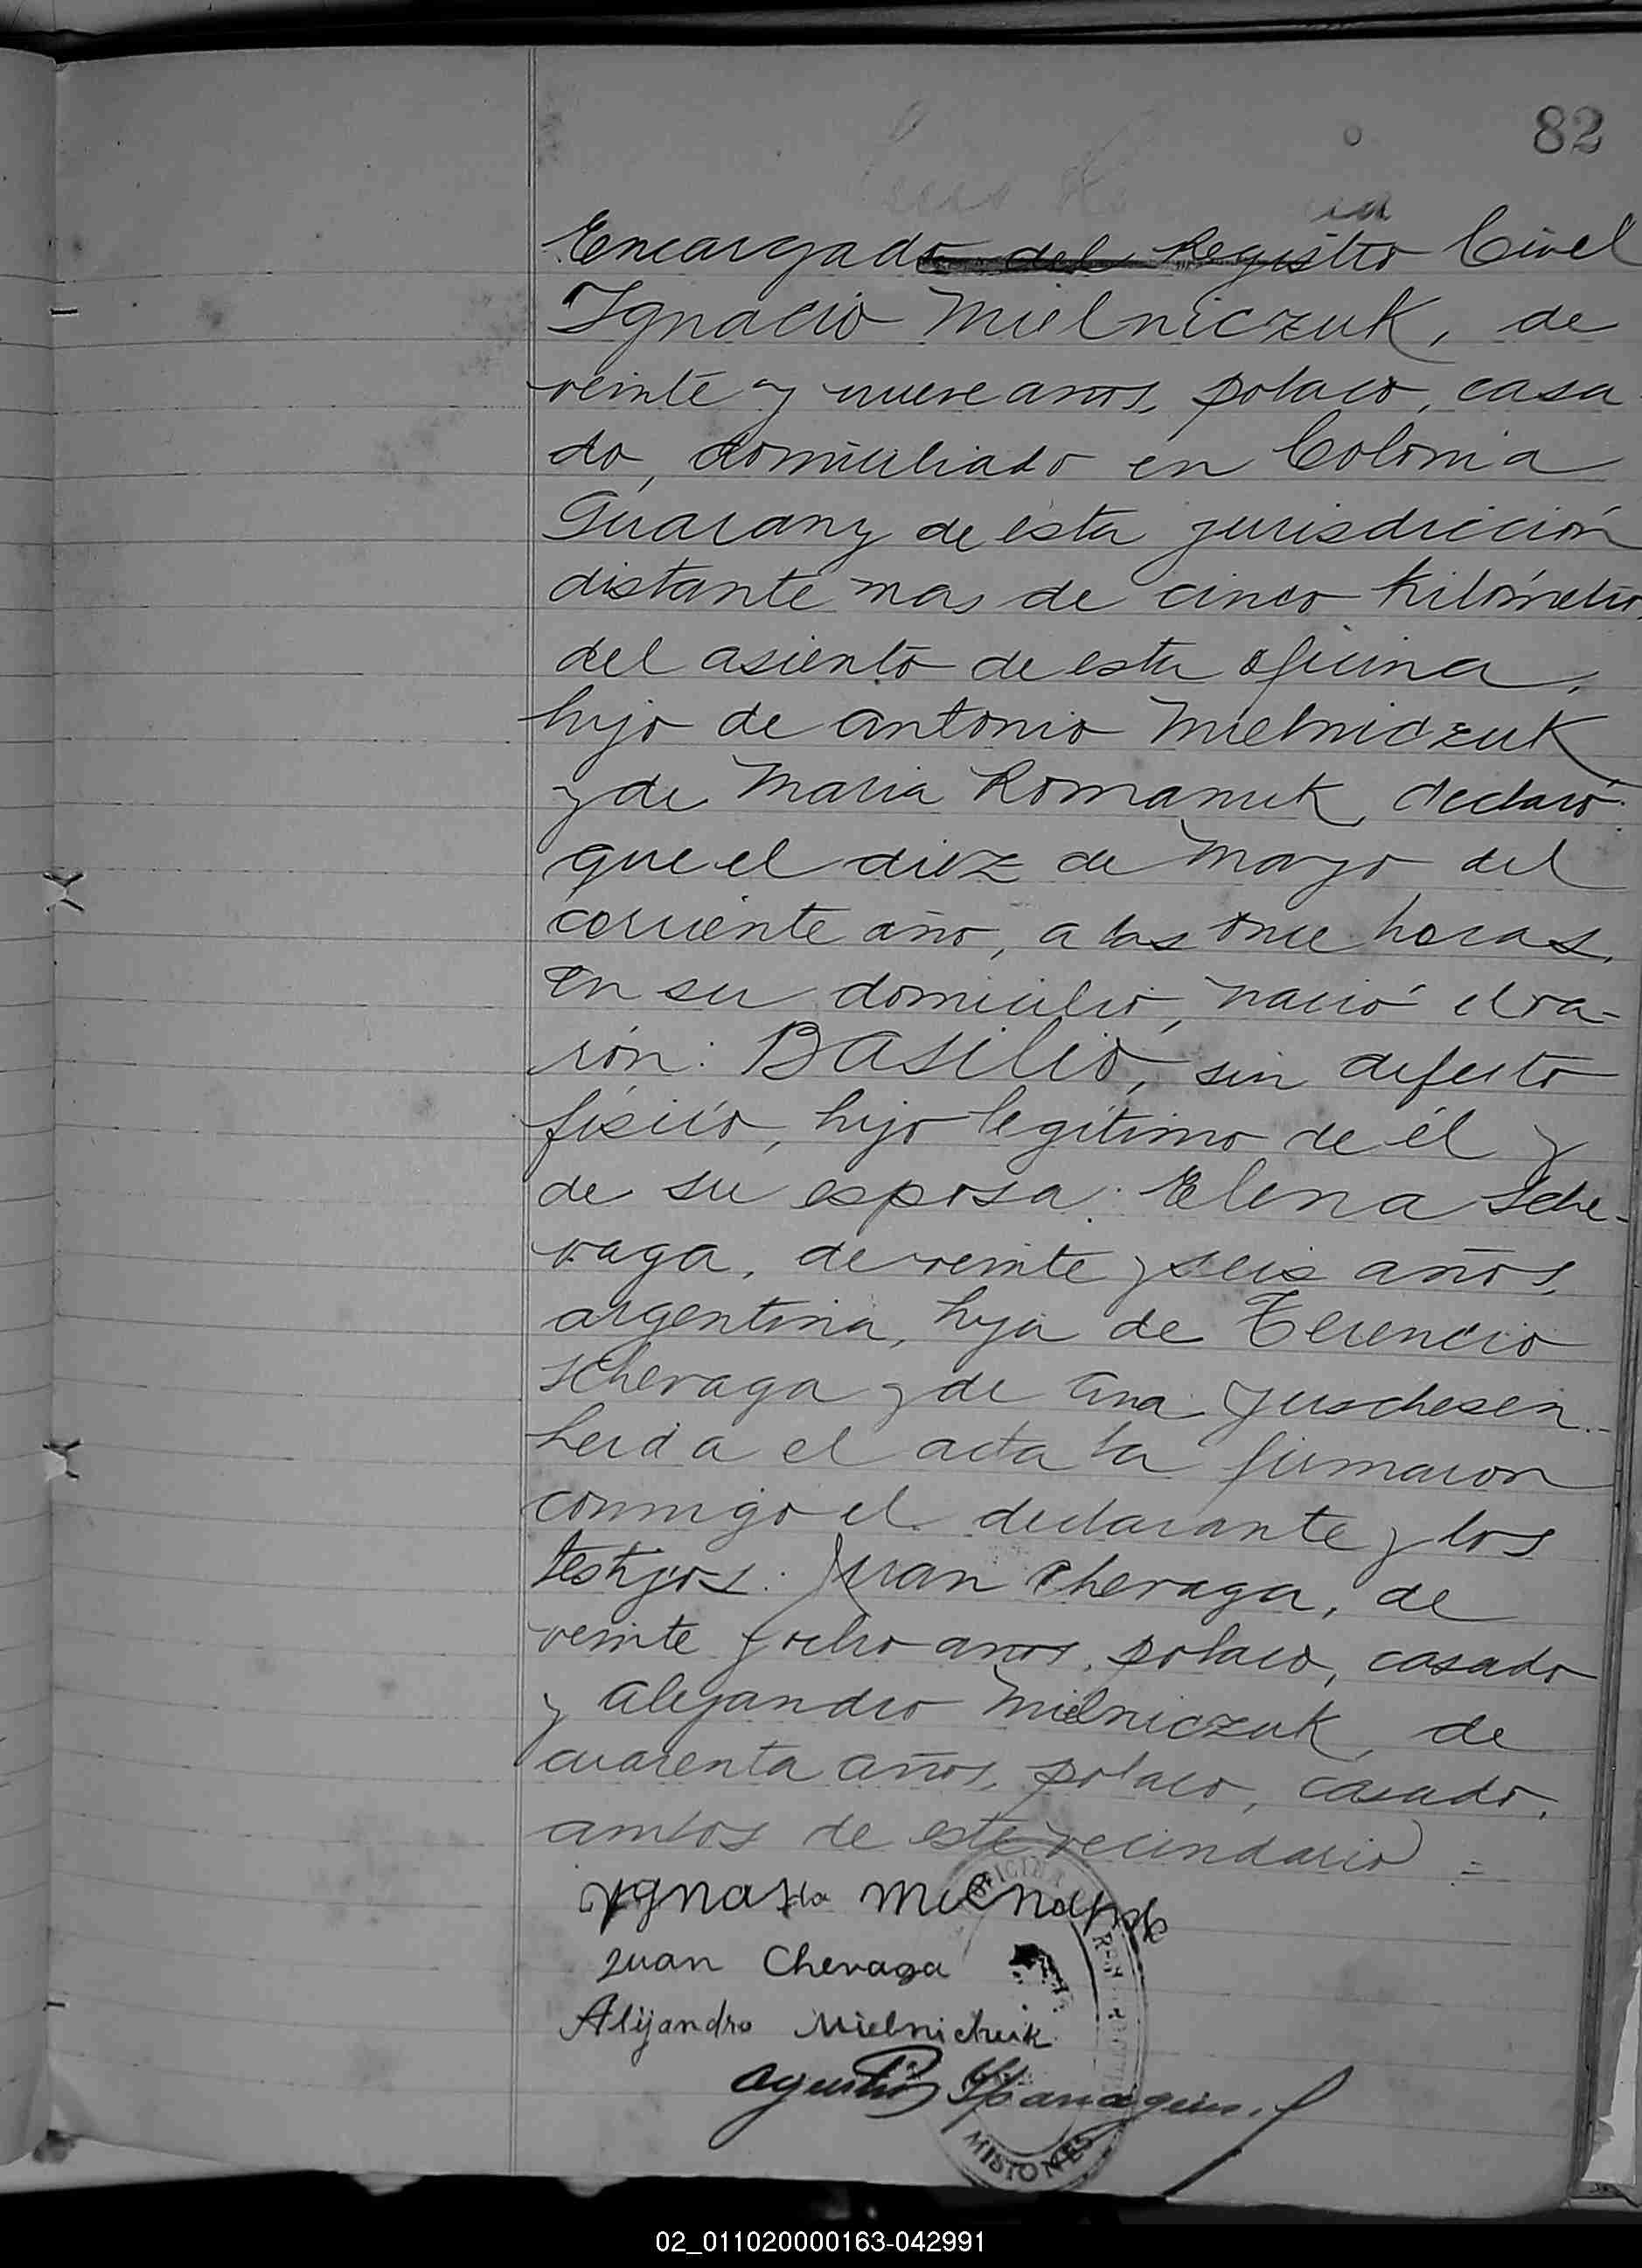 82
Encargado del Registro Civil
Ignacio Mielniczuk, de
veinte y nueve años, polaco, casa
do, domiciliado en Colonia
Guarany de esta jurisdicción
distante mas de cinco kilómetros
del asiento de esta oficina,
hijo de Antonio Mielniczuk
y de Maria Romaniuk, declaró:
que el diez de Mayo del
corriente año, a las once horas,
en su domicilio, nació el va-
rón: BASILIO, sin defecto
físico, hijo legítimo de él y
de su esposa: Elena Sche-
vaga, de veinte y seis años,
argentina, hija de Terencio
Schevaga y de Ana Juschesen.-
Leida el acta la firmaron
conmigo el declarante y los
testigos: Juan Chevaga, de
veinte y ocho anos, polaco, casado
y Alejandro Mielniczuk, de
cuarenta años, polaco, casado,
ambos de este vecindario =
Juan Chevaga
Alijandro Mielnichuik
Agustin
OFICINA
MISIONES
02_011020000163-042991